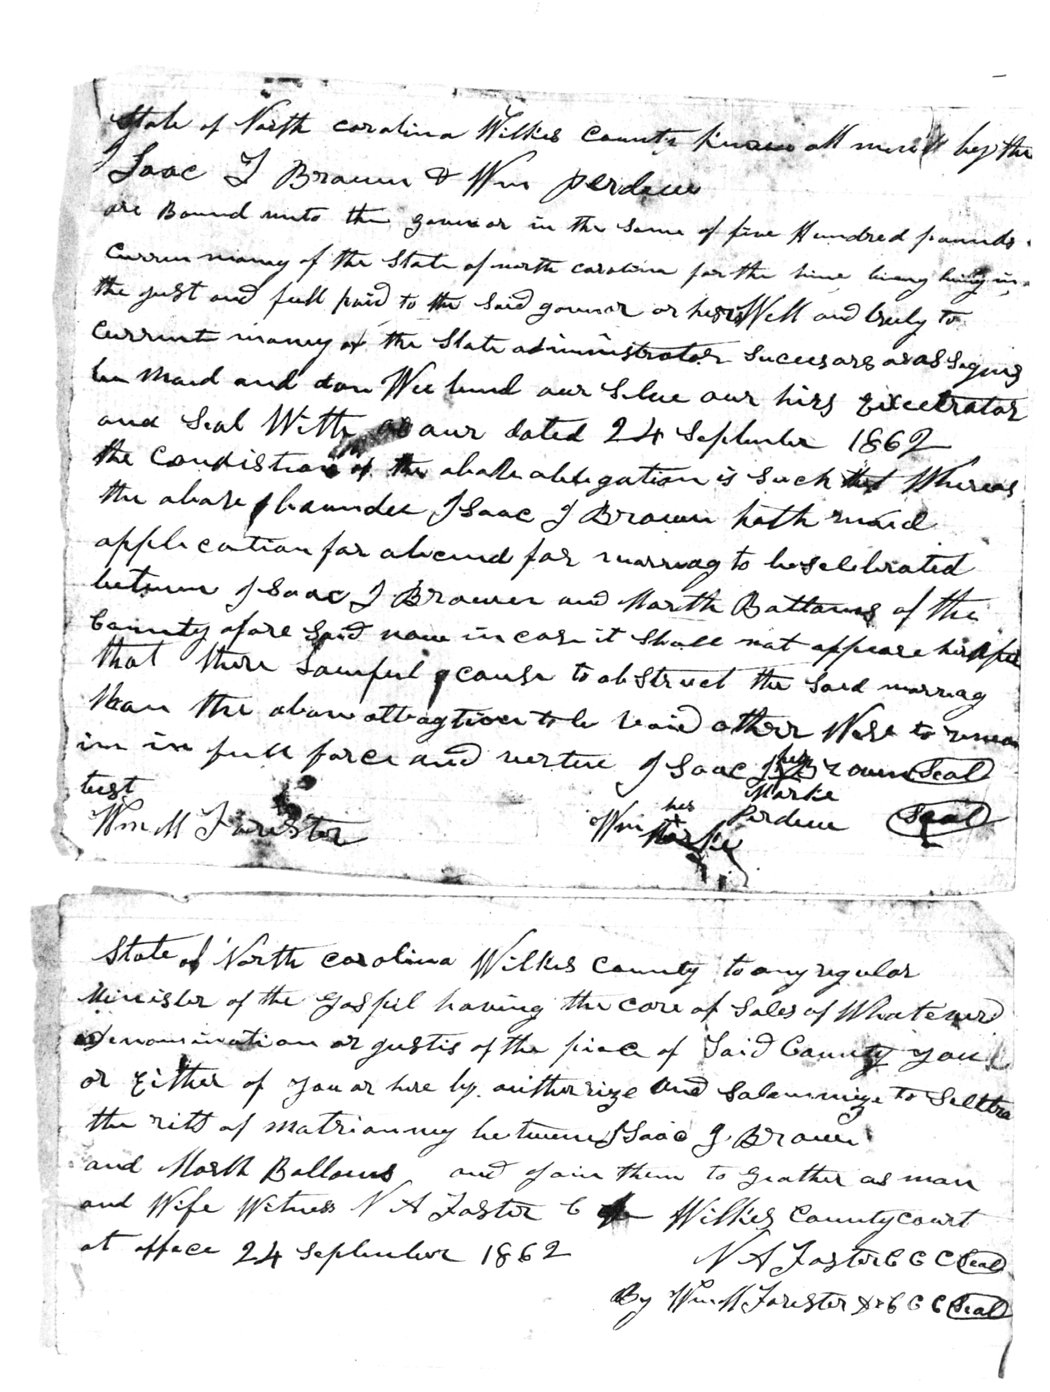 State of North carolina Wilkes County know all men by the
Isaac J Brown & Wm Perdew
are Bound unto the govner in the same of five Hundred pounds
curren money of the State of north carolina for the time being
the just and full paid to the said govner or Well and truly to
current money of the State administrator sucessars or assigns
be Maid and don Wee bind our Selve our hirs Exicutrator
and Seal Witt our dated 24 September 1862
the Condistion of the above abligation is Such that Whereas
the above bounden Isaac J Brown hath maid
application for for marriag to be selebrated
between Isaac J Brown and Marth Ballows of the
County afore Said now in case it Shall not appeare
that there Lawful cause to abstruct the Said marriag
than the above to be void other Wese to
in in full force and vertue Isaac J Brown Seal
his
Marke
test
Wm M Forester
Wm his Perdew Seal
Marke
State of North Carolina Wilkes County to any regular
Minister of the Gospel having the care of Soles of Whatever
denomination or gustis of the piace of Said County you
or Either of you ar here by authorize and Solemnize to
the rits of matrimoney between Isaac J. Brown
and Marth Ballows and join them to geather as man
and Wife Witness N A Foster C Wilkes County court
at office 24 September 1862
N A Foster C C C Seal
By Wm M Forester C C C Seal